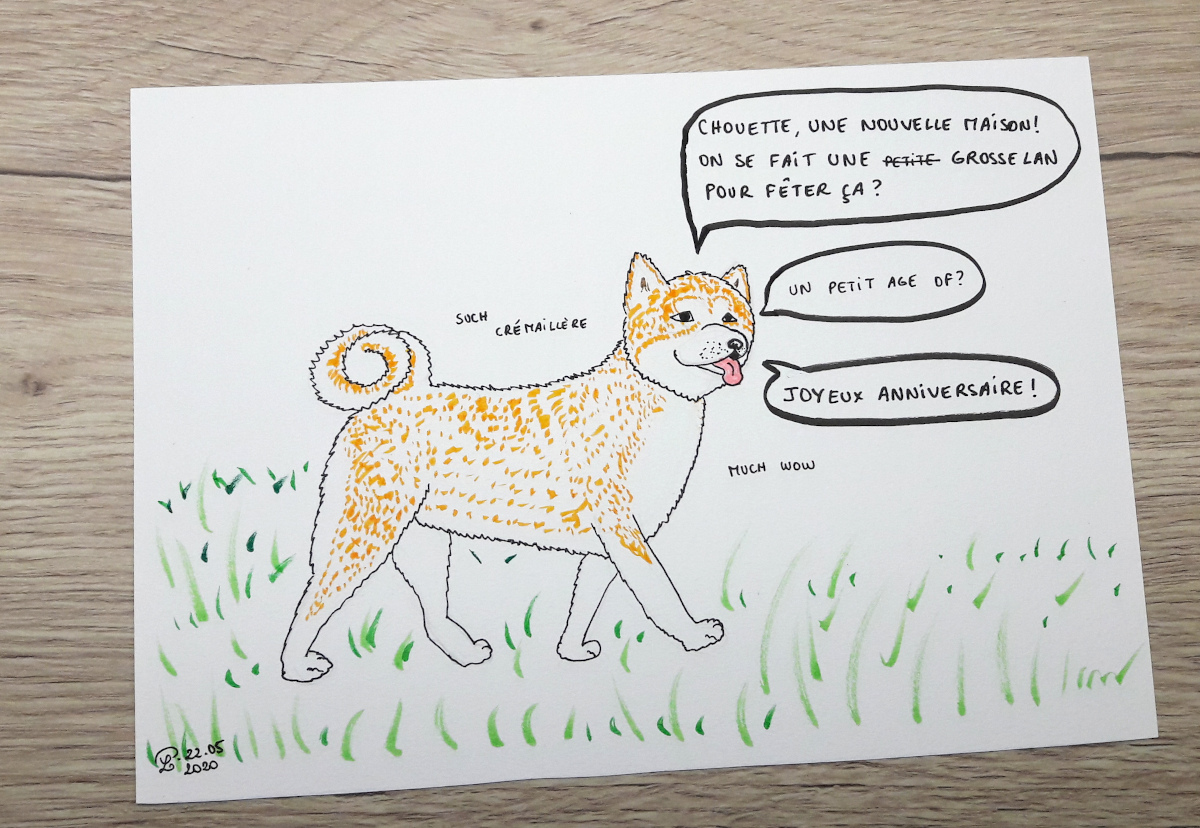 CHOUETTE, UNE NOUVELLE MAISON!
ON SE FAIT UNE PETITE GROSSE LAN
POUR FÊTER ÇA?
UN PETIT AGE OF?
SUCH
CRÉMAILLÈRE
JOYEUX ANNIVERSAIRE!
MUCH WOW
22.05
2020